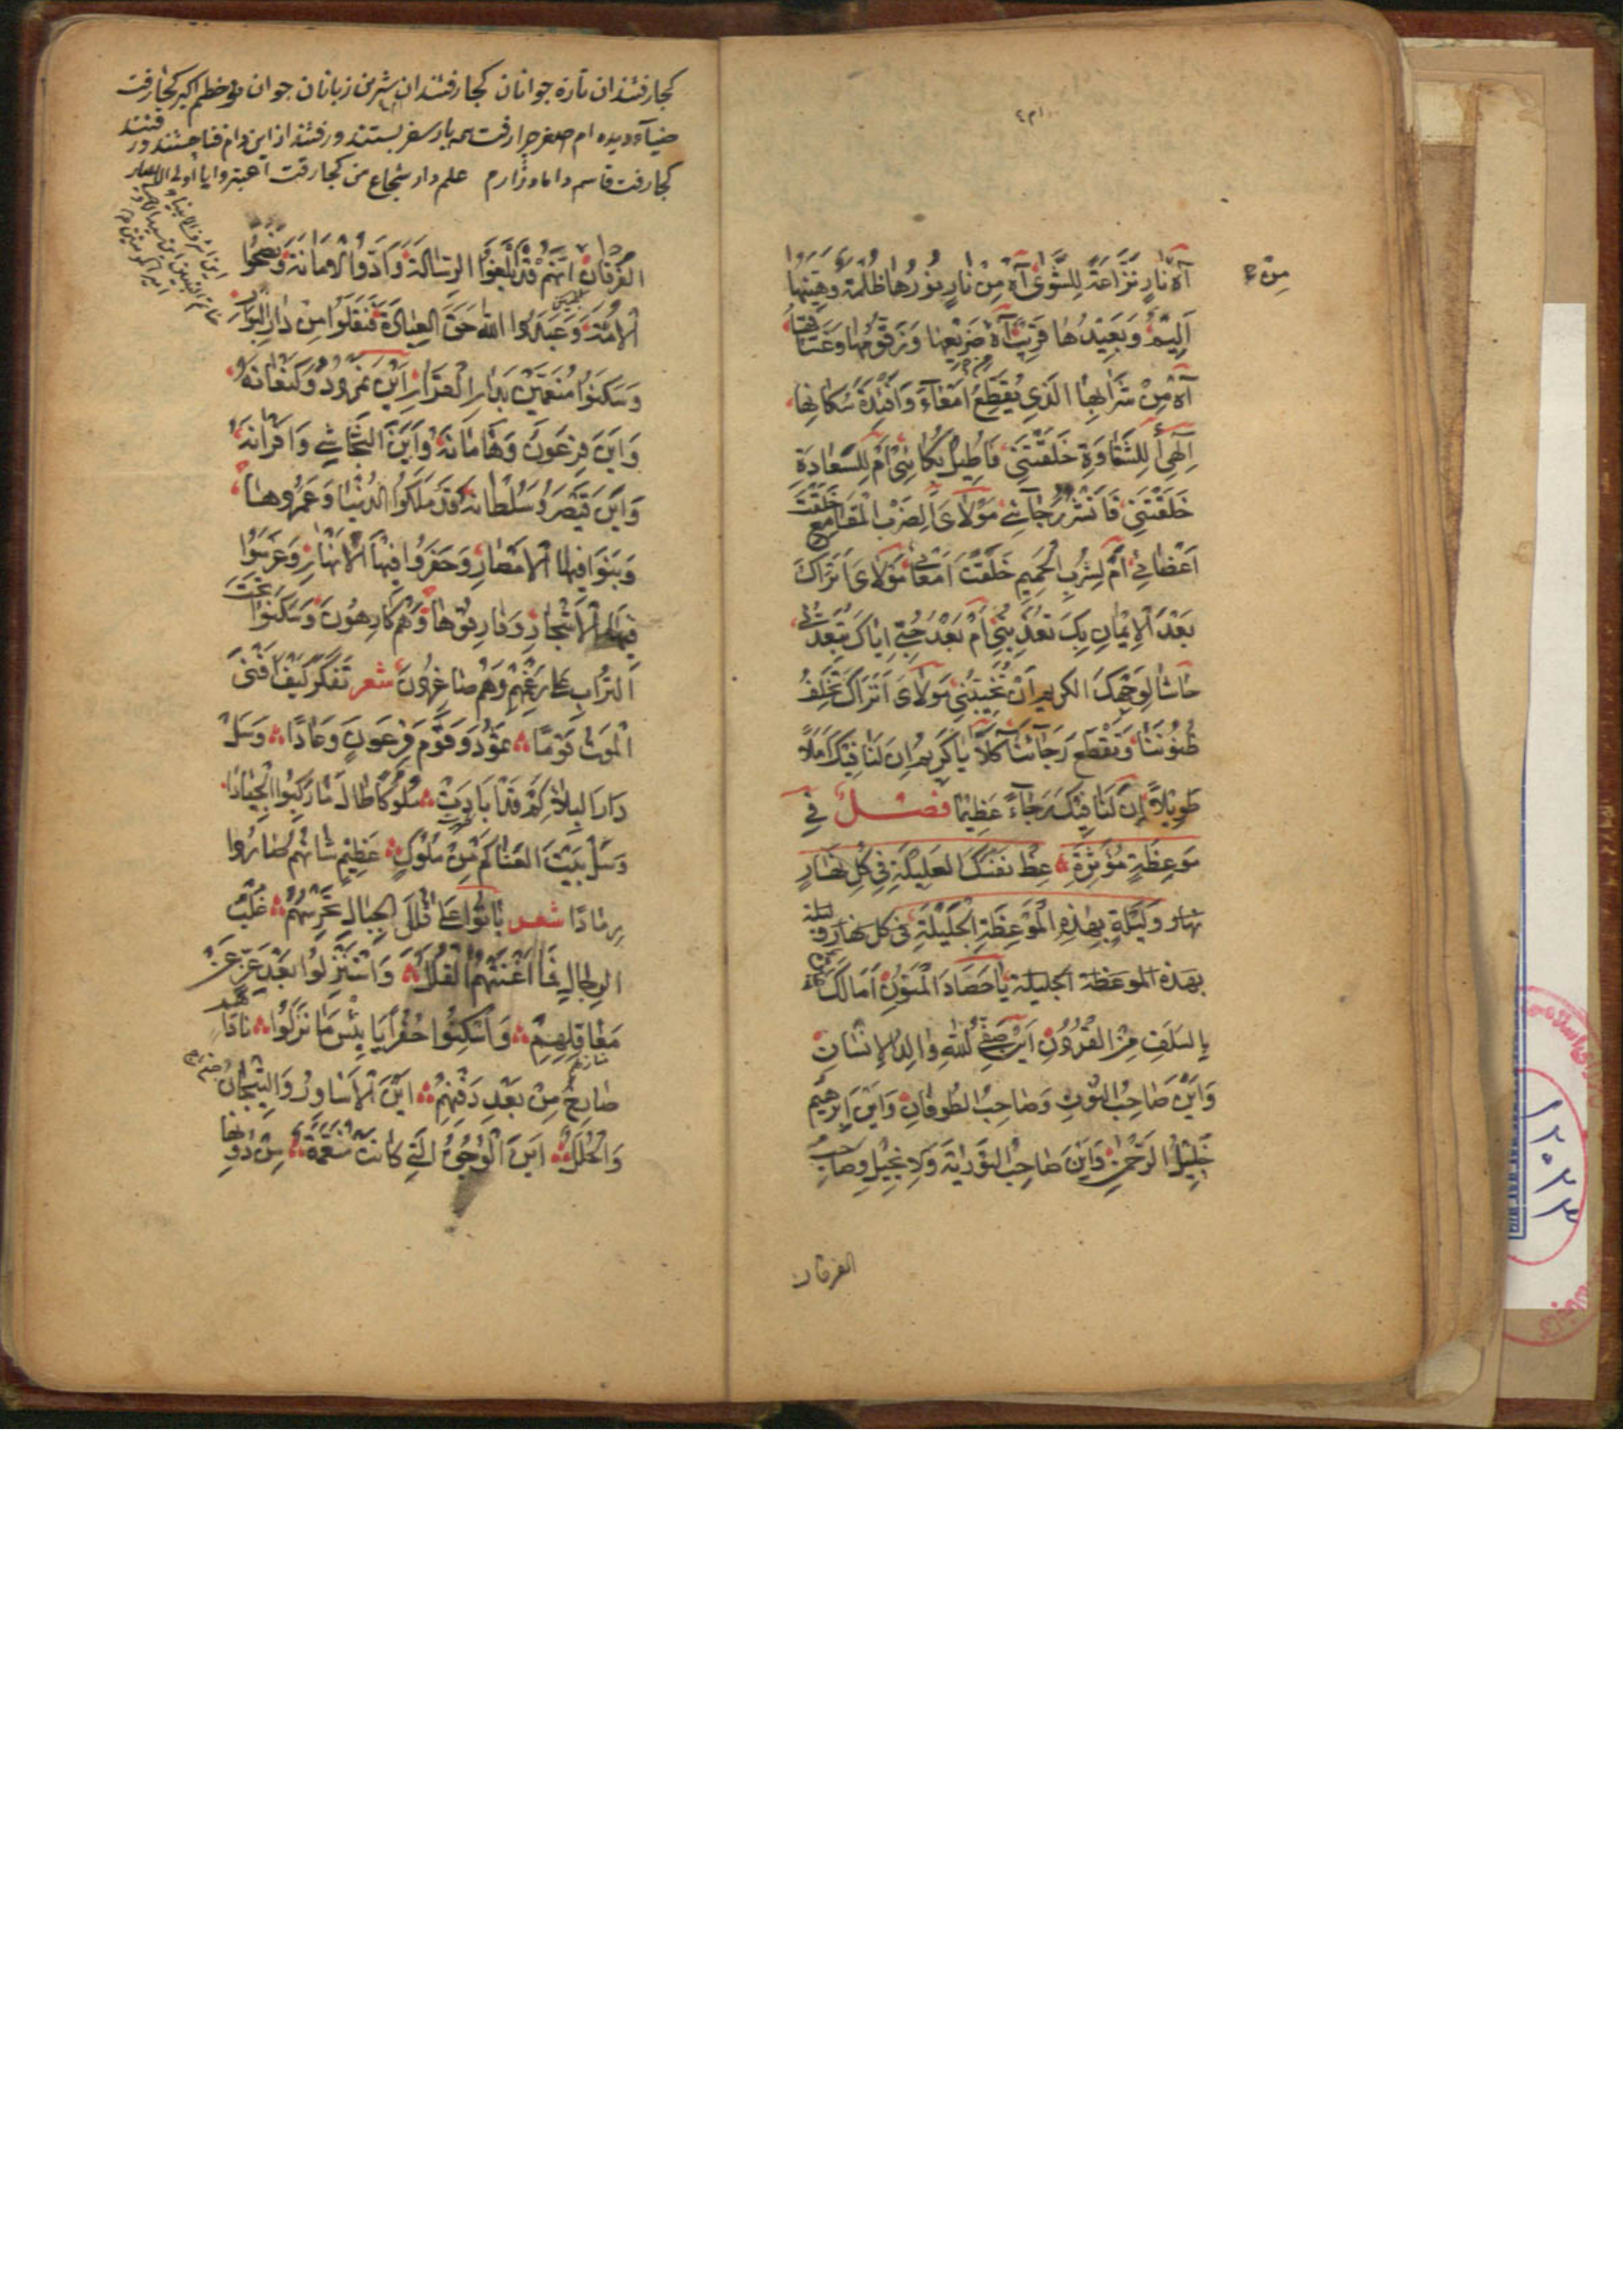 آهْ نَارٍ نَزَّاعَةً لِلشَّوٰى آهْ مِنْ نَارٍ نُورُهَا ظُلْمَةٌ وَهَيِّنُهَا
أَلِيمٌ وَبَعِيدُهَا قَرِيبٌ آهْ ضَرِيعِهَا وَزَقُّومُهَا
آهْ مِنْ شَرَابِهَا الَّذِي يُقَطِّعُ اَمْعَآءَ وَاَفْئِدَةَ سُكَّانِهَا
اِلٰهِي أَلِلشَّقَاوَةِ خَلَقْتَنِي فَاُطِيلُ بُكَائِي اَمْ لِلسَّعَادَةِ
خَلَقْتَنِي فَاَنْشُرُ رَجَآئِي مَوْلَايَ اَلِضَرْبِ الْمَقَامِعِ خَلَقْتَ
اَعْضَائِي اَمْ لِشُرْبِ الْحَمِيمِ خَلَقْتَ اَمْعَائِي مَوْلَايَ اَتَرَاكَ
بَعْدَ الْاِيمَانِ بِكَ تُعَذِّبُنِي اَمْ بَعْدَ حُبِّي اِيَّاكَ تُبَعِّدُنِي
حَاشَا لِوَجْهِكَ الكريم اَنْ تُخَيِّبَنِي مَوْلَايَ اَتَرَاكَ تُخْلِفُ
ظُنُونَنَا وَتَقْطَعُ رَجَائَنَا كَلَّا يَا كَرِيمُ اِنَّ لَنَا فِيكَ اَمَلًا
طَوِيلًا اِنَّ لَنَا فِيكَ رَجَآءً عَظِيمًا فصل فِي
مَوعِظَةٍ مُؤَثِرَةٍ عِظْ نَفْسَكَ العَلِيلَةِ فِي كُلِّ نَهَارٍ
نهار وَلَيْلَةٍ بِهٰذِهِ الْمَوْعِظَةِ الْجَلِيلَةِ في كل نهار و ليلة
بهذه الموعظة الجليلة يَا حَصَادَ الْمَنُونِ اَمَا لَكَ
بِالسَلَفِ مِنَ الْقُرُونِ اَيْنَ صَفِيُّ اللّٰهِ وَالِدُ الْاِنْسَانِ
وَاَيْنَ صَاحِبُ النُّونِ وَصَاحِبُ الطُوفَانِ وَاَيْنَ اِبْرٰهِيمُ
خَلِيلُ الرَّحْمٰنِ وَاَيْنَ صَاحِبُ التَّوْرٰيةِ وَالْاِنجِيلِ وصَاحِبُ
الفرقان
كجا رفتند ان تازه جوانان كجا رفتند ان شيرين زبانان جوان اكبر كجا رفت
ضياء ديده ام اصغر چرا رفت همه بار سفر بستند و رفتند از اين
كجا رفت قاسم داماد زارم علم دار شجاع من كجا رفت اعتبروا يا أولي الابصار
الفُرْقَانِ اِنَّهُمْ قَدْ بَلَّغُوا الرِسَالَةَ وَاَدَّوُا الْاَمَانَةَ وَنَصَحُوا
الْاُمَّةَ وَعَبَدُوا اللّٰهَ حَقَّ العِبَادَةِ فَنُقِلُوا مِنْ دَارِ البَوَارِ
وَسَكَنُوا مُنَعَّمِينَ بِدَارِ الْقَرَارِ اَيْنَ نَمْرُودُ وَكَنْعَانُهُ
وَاَيْنَ فِرْعَوْنُ وَهَامَانُهُ وَاَيْنَ النَّجَاشِي وَاَقْرَانُهُ
وَاَيْنَ قَيْصَرُ وَسُلْطَانُهُ قَدْ مَلَكُوا الدُنْيَا وَعَمَرُوهَا
وَبَنَوا فِيهَا الْاَمْصَارَ وَحَفَرُوا فِيهَا الْاَنْهَارَ وَغَرَسُوا
فِيهَا الْاَشْجَارَ وَفَارِقُوهَا وَهُمْ كَارِهُونَ وَسَكَنُوا تَحْتَ
التُرَابِ وَهُمْ صَاغِرُونَ شعر تَفَكَّرْ كَيْفَ اَفْنَى
الْمَوتُ قَومًا ثَمُودَ وَقَوْمَ فِرْعَونٍ وَعَادًا وَسَلْ
دَارَ البِلَا كَمْ قَدْ اَبَادَتْ مُلُوكًا طَالَ مَا رَكِبُوا الْجِيَادَا
وَسَلْ بَيْتَ الْفَنَا كَمْ مِنْ مُلُوكٍ عَظِيمٍ شَانُهُمْ صَارُوا
رَمَادًا شعر بَاتُوا عَلَى قُلَلِ الجِبَالِ تَحْرُسُهُمْ غُلْبُ
الرِجَالِ فَمَا اَغْنَتْهُمُ القُلَلُ وَاسْتُنْزِلُوا بَعْدَ عِزٍّ عَنْ
مَعَاقِلِهِمْ وَاُسْكِنُوا حُفَرًا يَا بِئْسَ مَا نَزَلُوا نَادَاهُمْ
صَارِخٌ مِنْ بَعْدِ دَفْنِهِمْ اَيْنَ الْاَسَاوِرُ وَالتِّيجَانُ
وَالْحُلَلُ اَيْنَ الْوُجُوهُ الَّتِي كَانَتْ مُنَعَّمَةً مِنْ دُونِهَا